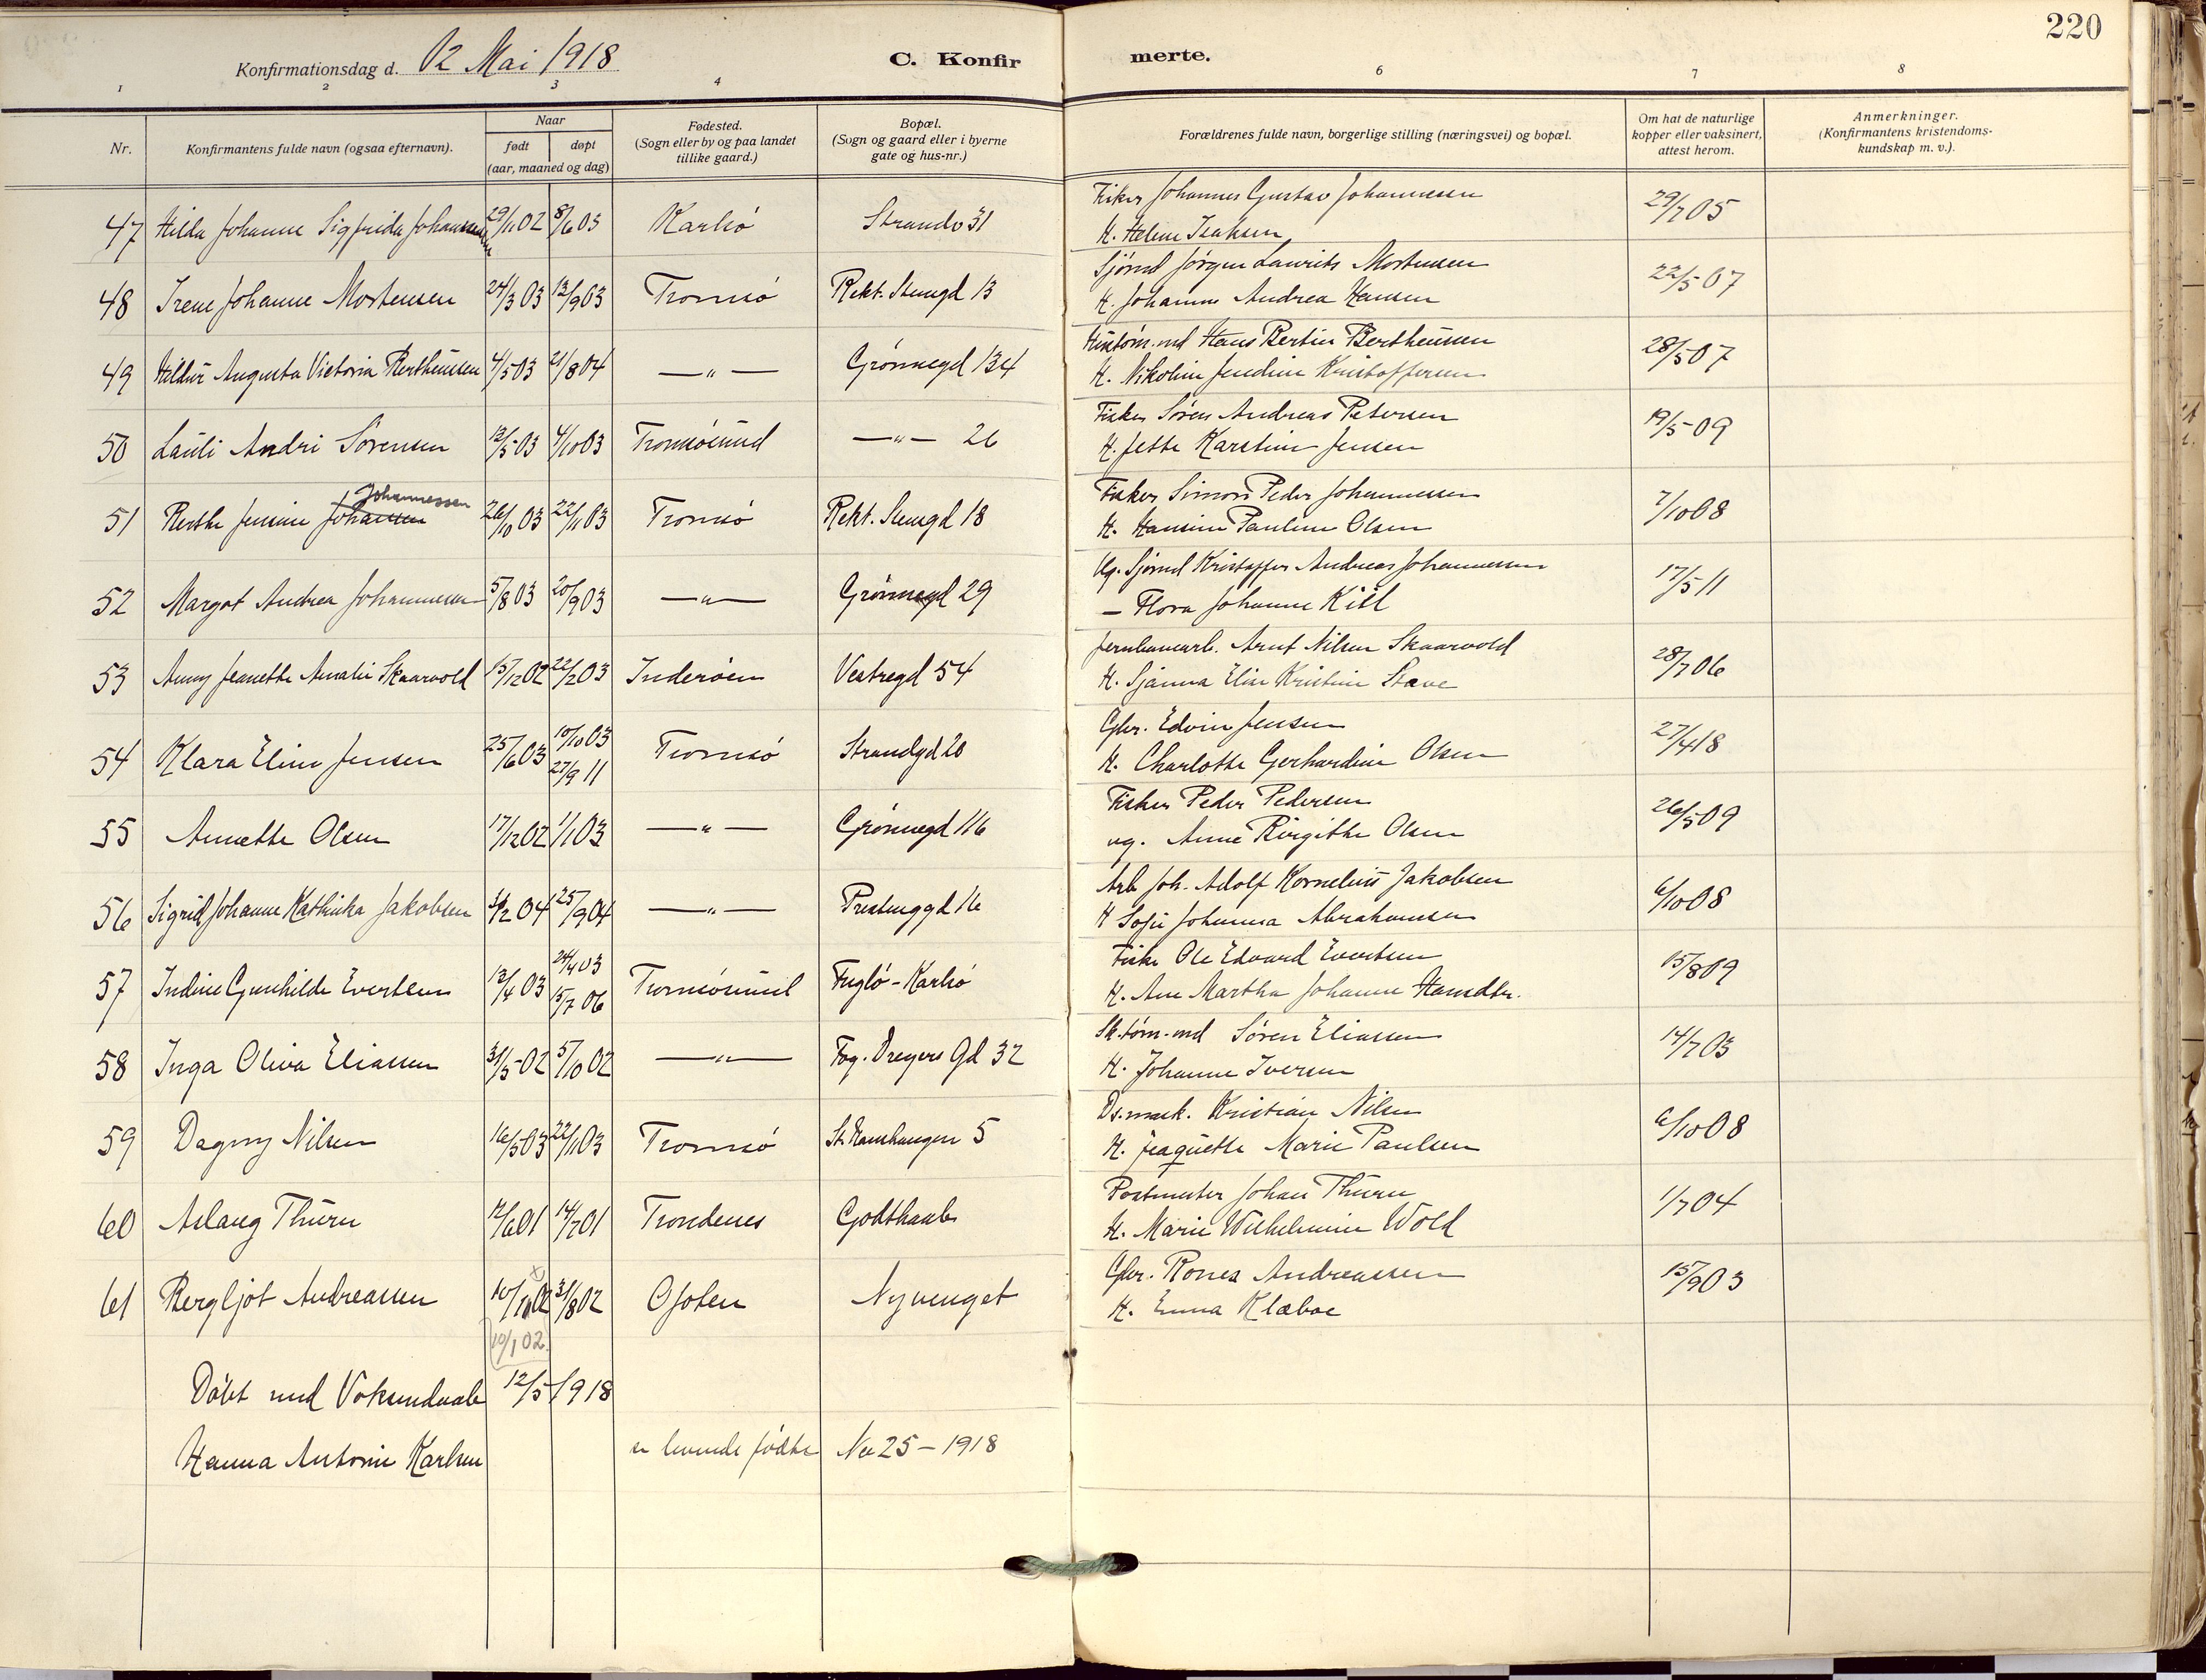 220
Konfirmationsdag d. 12 Mai 1918
C. Konfirmerte.
1 2 3 4 6 7 8
Nr.
Konfirmantens fulde navn (ogsaa efternavn).
Naar
født døpt
(aar, maaned og dag)
Fødested.
(Sogn eller by og paa landet
tillike gaard.)
Bopæl.
(Sogn og gaard eller i byerne
gate og hus-nr.)
Forældrenes fulde navn, borgerlige stilling (næringsvei) og bopæl.
Om hat de naturlige
kopper eller vaksinert,
attest herom.
Anmerkninger.
(Konfirmantens kristendoms-
kundskap m. v.).
47 Hilda Johanne Sigfrida Johannessen 29/11 02 8/6 03 Karlsö Strandv 31 Fisker Johannes Gustav Johannesen 29/7 05
H. Helene Isaksen
48 Irene Johanne Mortensen 24/3 03 13/9 03 Tromsö Rekt. Stengd 13 Sjömd Jörgen Laurits Mortensen 22/5 07
H. Johanne Andrea Hansen
49 Hildur Augusta Victoria Bertheussen 4/5 03 21/8 04 — " — Grönnegd 134 Hans Bertin Bertheussen 28/5 07
H. Nikoline Jendine Kristoffersen
50 Lauli Andri Sörensen 12/5 03 4/10 03 Tromsösund — " — 26 Fisker Sören Andreas Petersen 19/5 09
H. Jette Karstine Jensen
51 Berthe Jensine Johansen Johannessen 26/10 03 22/11 03 Tromsö Rekt. Stengd 18 Fisker Simon Peder Johannessen 7/10 08
H. Hansine Pauline Olsen
52 Margot Andrea Johannesen 5/8 03 20/9 03 — " — Grönnegd 29 Ug. Sjömd Kristoffer Andreas Johannessen 17/5 11
— Flora Johanne Kiil
53 Anny Jeanette Amalie Skaarvold 15/12 02 22/2 03 Inderöen Vestregd 54 Jernbanearb. Arnt Nilsen Skaarvold 28/7 06
H. Sjanna Elise Kristine Stave
54 Klara Eline Jensen 25/6 03 10/10 03 Tromsö Strandgd 20 Gbr. Edvin Jensen 27/4 18
27/9 11 H. Charlotte Gerhardine Olsen
55 Annette Olsen 17/12 02 1/1 03 — " — Grönnegd 116 Fisker Peder Pedersen 26/5 09
ug. Anne Birgithe Olsen
56 Sigrid Johanne Kathinka Jakobsen 2 04 25/9 04 — " — Prestenggd 16 Arb Joh. Adolf Kornelius Jakobsen 6/10 08
H Sofie Johanna Abrahamsen
57 Indine Gunhilde Evertsen 13/4 03 24/4 03 Tromsösund Fuglö - Karlsö Fisker Ole Edvard Evertsen 15/8 09
15/7 06 H. Ane Martha Johanne Hansdtr.
58 Inga Oliva Eliassen 31/5 02 5/10 02 — " — Fog. Dreyers Gd 32 Sk. töm-md Sören Eliassen 14/7 03
H. Johanne Iversen
59 Dagny Nilsen 16/5 03 22/11 03 Tromsö St. Hanshaugen 5 Ds. mask. Kristian Nilsen 6/10 08
H. Jeaquette Marie Paulsen
60 Aslaug Thurn 12/6 01 14/7 01 Trondenes Godthaab Postmester Johan Thurn 1/7 04
H. Marie Wilhelmine Wold
61 Bergljot Andreassen 10/10 02 x 31/8 02 Ofoten Nyvenget Gbr. Rones Andreassen 15/9 03
10/1 02 H. Emma Klæboe
Döbt med Voksendaab 12/5 1918
Hanna Antonie Karlsen se levende födte No 25 - 1918